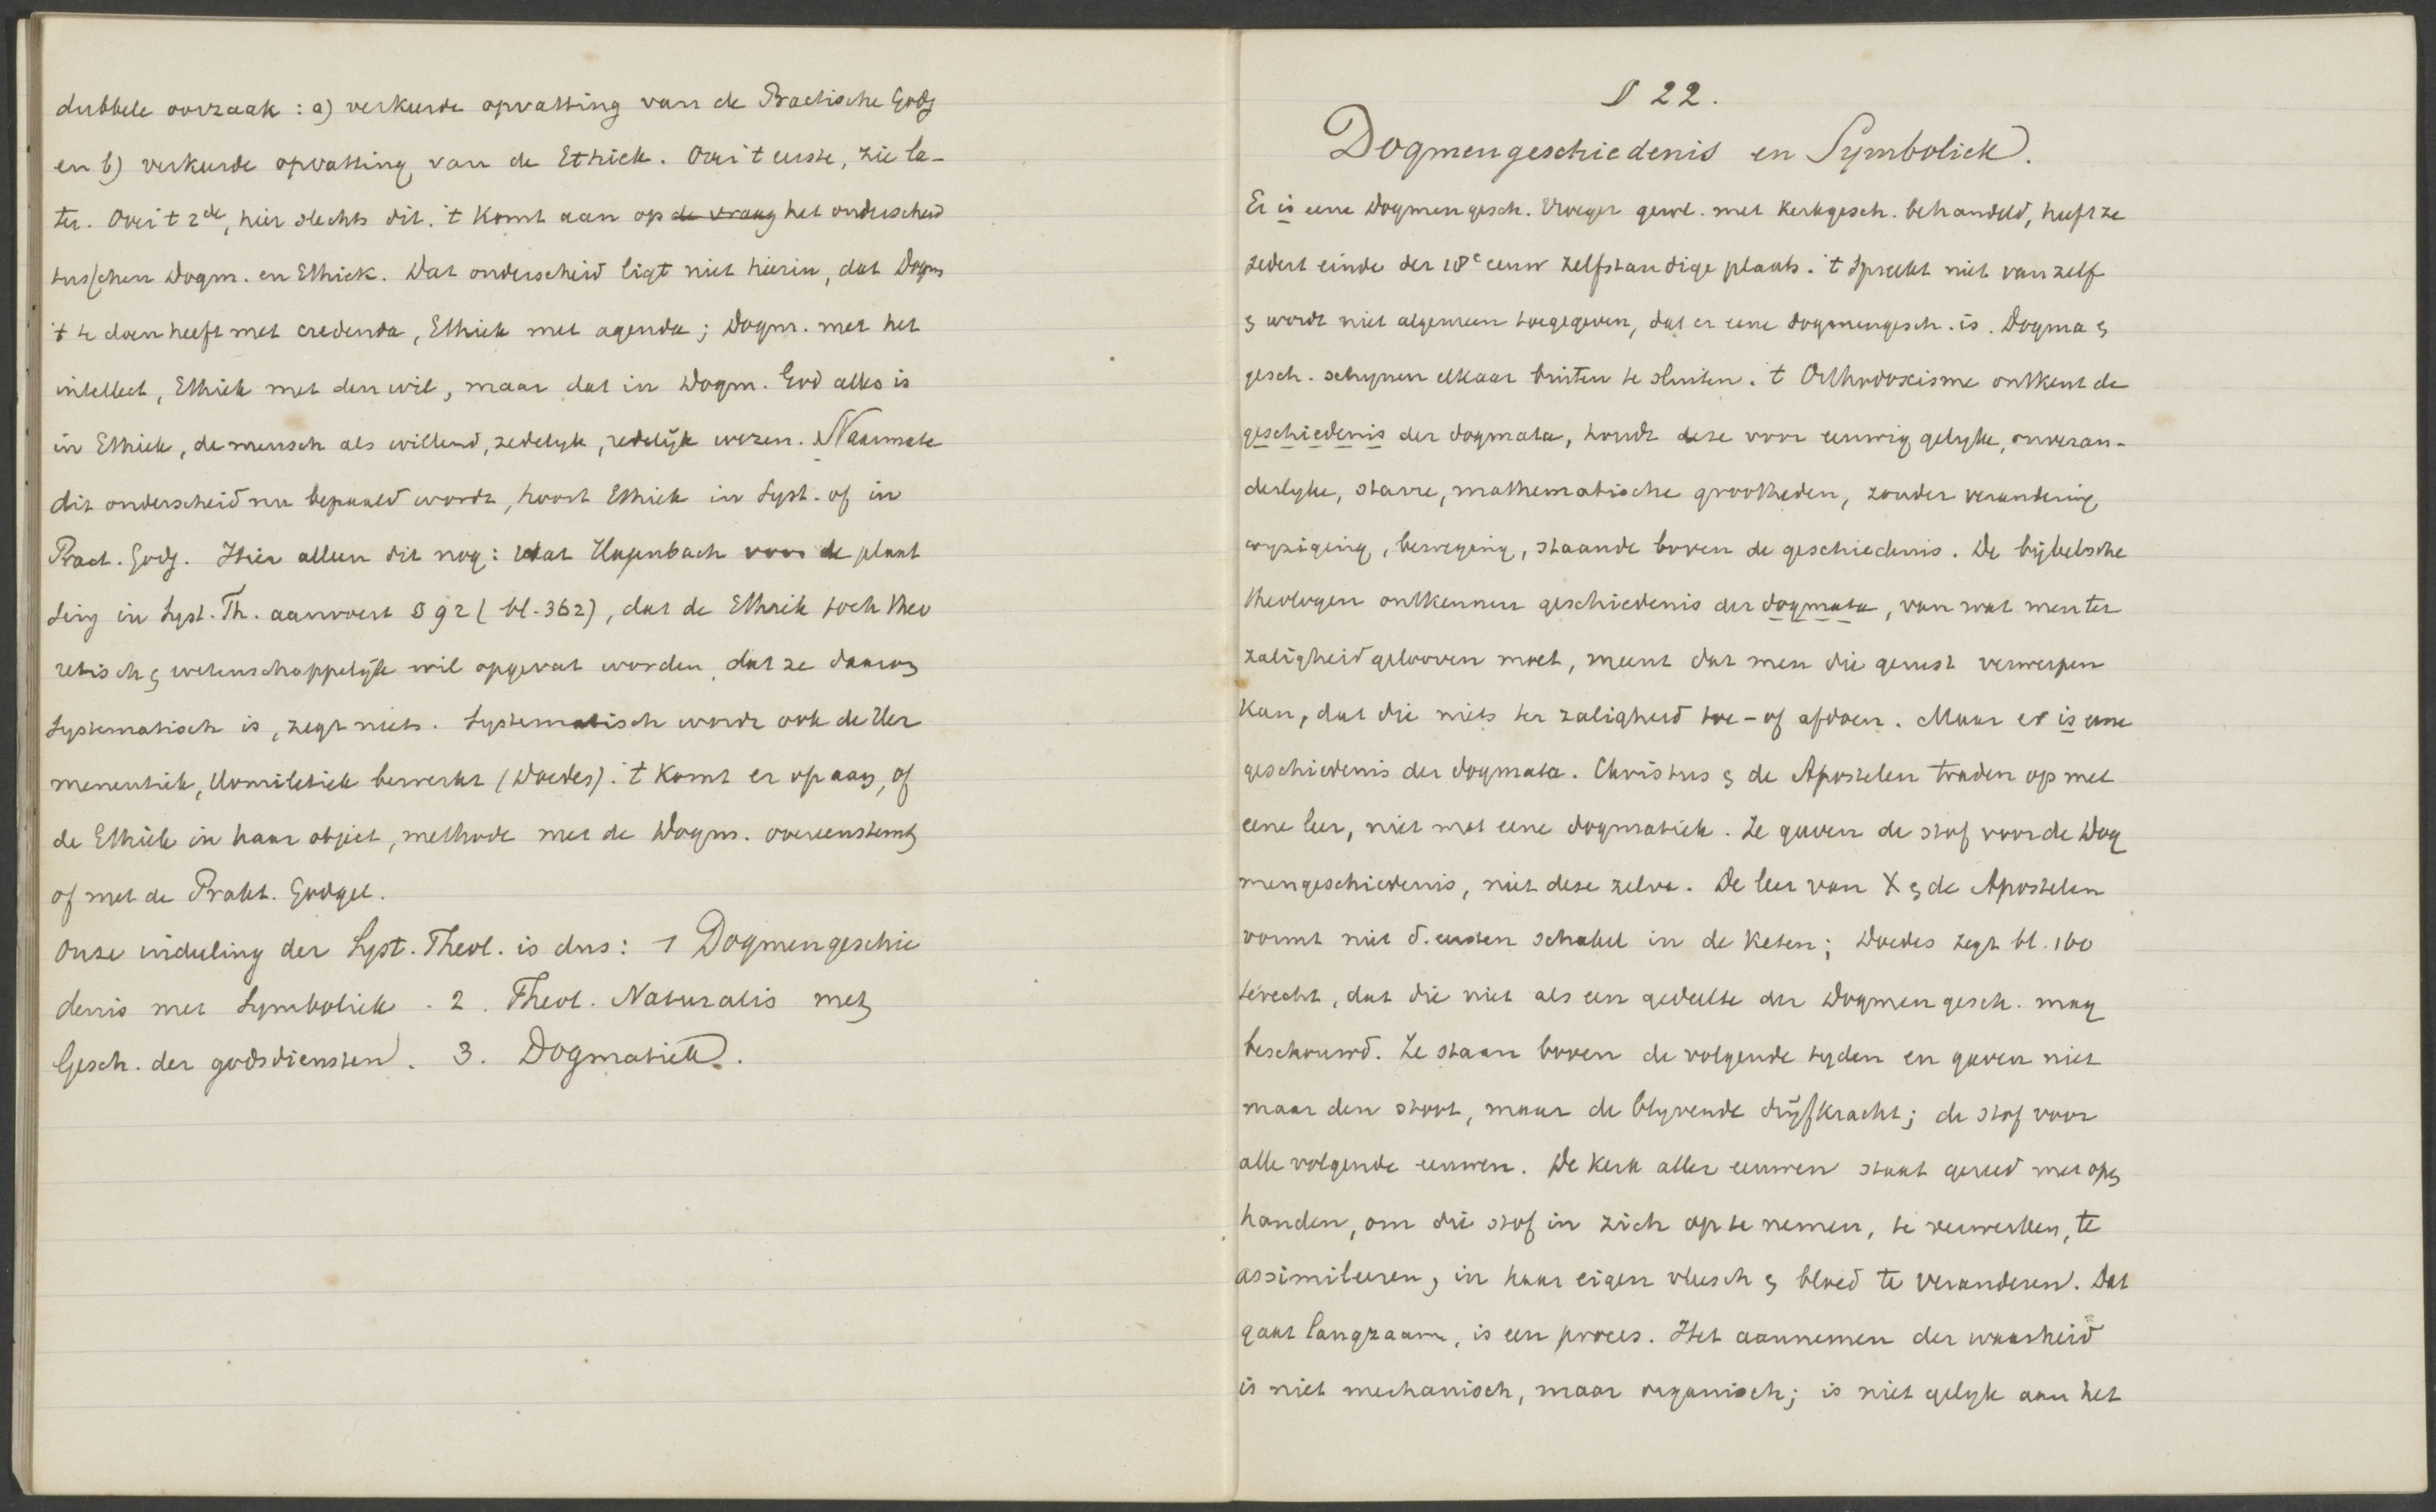 dubbele oorzaak : a) verkeerde opvatting van de Practische Godg
en b) verkeerde opvatting van de Ethiek. Over 't eerste, zie la-
ter. Over 't 2de, hier slechts dit. 't Komt aan op de vraag het onderscheid
tusschen Dogm. en Ethiek. Dat onderscheid ligt niet hierin, dat Dogm
't te doen heeft met credenda, Ethiek met agenda ; Dogm. met het
intellect, Ethiek met den wil, maar dat in Dogm. God alles is
in Ethiek, de mensch als willend, zedelyk, redelijk wezen. Naarmate
dit onderscheid nu bepaald wordt, hoort Ethiek in Syst. of in
Pract. Godg. Hier alleen dit nog : Wat Hagenbach voor de plaat
sing in Syst. Th. aanvoert § 92 (bl. 362), dat de Ethiek toch theo
retisch & wetenschappelijk wil opgevat worden, dat ze daarom
Systematisch is, zegt niets. Systematisch wordt ook de Her
meneutiek, Homiletiek bewerkt (Doedes). 't Komt er op aan, of
de Ethiek in haar object, methode met de Dogm. overeenstemt
of met de Prakt. Godgel.
Onze indeeling der Syst. Theol. is dus : 1 Dogmengeschie
denis met Symboliek . 2 . Theol. Naturalis met
Gesch. der godsdiensten . 3. Dogmatiek.
§ 22.
Dogmengeschiedenis en Symboliek.
Er is eene Dogmengesch. Vroeger gewl. met Kerkgesch. behandeld, heeft ze
zedert einde der 18e eeuw zelfstandige plaats. 't Spreekt niet van zelf
& wordt niet algemeen toegegeven, dat er eene dogmengesch. is. Dogma &
gesch. schynen elkaar buiten te sluiten. 't Orthodoxisme ontkent de
geschiedenis der dogmata, houdt deze voor eeuwig gelyke, onveran-
derlyke, starre, mathematische grootheden, zonder verandering,
wyziging, beweging, staande boven de geschiedenis. De bijbelsche
theologen ontkennen geschiedenis der dogmata, van wat men ter
zaligheid gelooven moet, meent dat men die gerust verwerpen
kan, dat die niets ter zaligheid toe - of afdoen. Maar er is eene
geschiedenis der dogmata. Christus & de Apostelen traden op met
eene leer, niet met eene dogmatiek. Ze gaven de stof voor de Dog
mengeschiedenis, niet deze zelve. De leer van X & de Apostelen
vormt niet d. eersten schakel in de keten ; Doedes zegt bl. 160
terecht, dat die niet als een gedeelte der Dogmengesch. mag
beschouwd. Ze staan boven de volgende tyden en gaven niet
maar den stoot, maar de blyvende drijfkracht ; de stof voor
alle volgende eeuwen. De Kerk aller eeuwen staat gereed met open
handen, om die stof in zich op te nemen, te verwerken, te
assimileeren, in haar eigen vleesch & bloed te veranderen. Dat
gaat langzaam, is een proces. Het aannemen der waarheid
is niet mechanisch, maar organisch ; is niet gelyk aan het